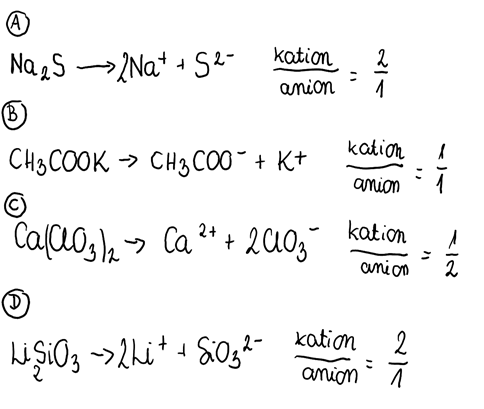 Ⓐ
Na₂S ⟶ 2Na⁺ + S²⁻ kation/anion = 2/1
Ⓑ
CH₃COOK → CH₃COO⁻ + K⁺ kation/anion = 1/1
Ⓒ
Ca(ClO₃)₂ → Ca²⁺ + 2ClO₃⁻ kation/anion = 1/2
Ⓓ
Li₂SiO₃ → 2Li⁺ + SiO₃²⁻ kation/anion = 2/1